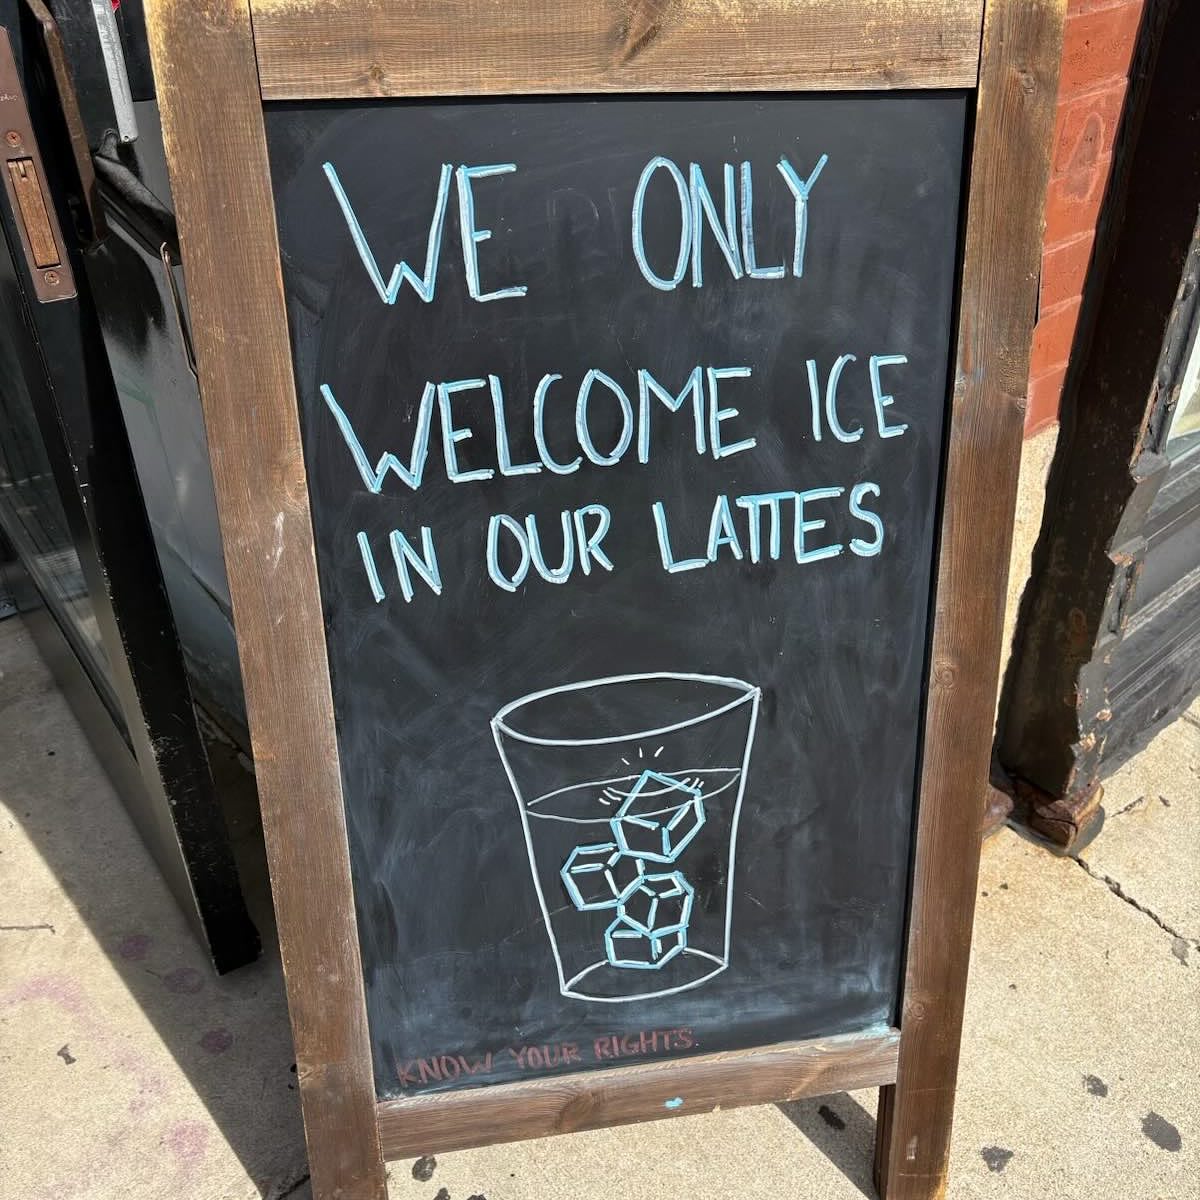 WE ONLY
WELCOME ICE
IN OUR LATTES
KNOW YOUR RIGHTS.